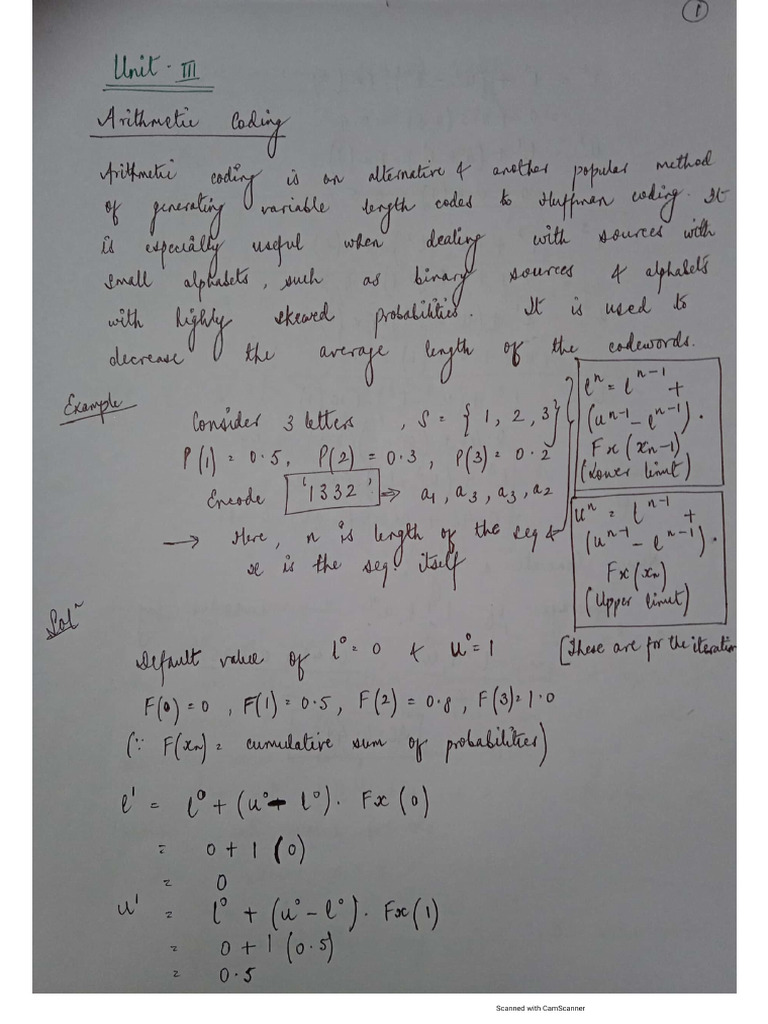 1
Unit - III
Arithmetic Coding
Arithmetic coding is an alternative & another popular method
of generating variable length codes to Huffman coding. It
is especially useful when dealing with sources with
small alphabets, such as binary sources & alphabets
with highly skewed probabilities. It is used to
decrease the average length of the codewords.
Example
Consider 3 letters, S = {1, 2, 3}
P(1) = 0.5, P(2) = 0.3, P(3) = 0.2
Encode '1332' => a₁, a₃, a₃, a₂
→ Here, n is length of the seq &
x is the seq. itself
lⁿ = lⁿ⁻¹ +
(uⁿ⁻¹ - lⁿ⁻¹).
Fx(xn-1)
(Lower limit)
uⁿ = lⁿ⁻¹ +
(uⁿ⁻¹ - lⁿ⁻¹).
Fx(xn)
(Upper limit)
[These are for the iteration
Solⁿ
Default value of l⁰ = 0 & u⁰ = 1
F(0) = 0, F(1) = 0.5, F(2) = 0.8, F(3) = 1.0
(∵ F(xn) = cumulative sum of probabilities)
l¹ = l⁰ + (u⁰ - l⁰). Fx(0)
= 0 + 1 (0)
= 0
u¹ = l⁰ + (u⁰ - l⁰). Fx(1)
= 0 + 1 (0.5)
= 0.5
Scanned with CamScanner